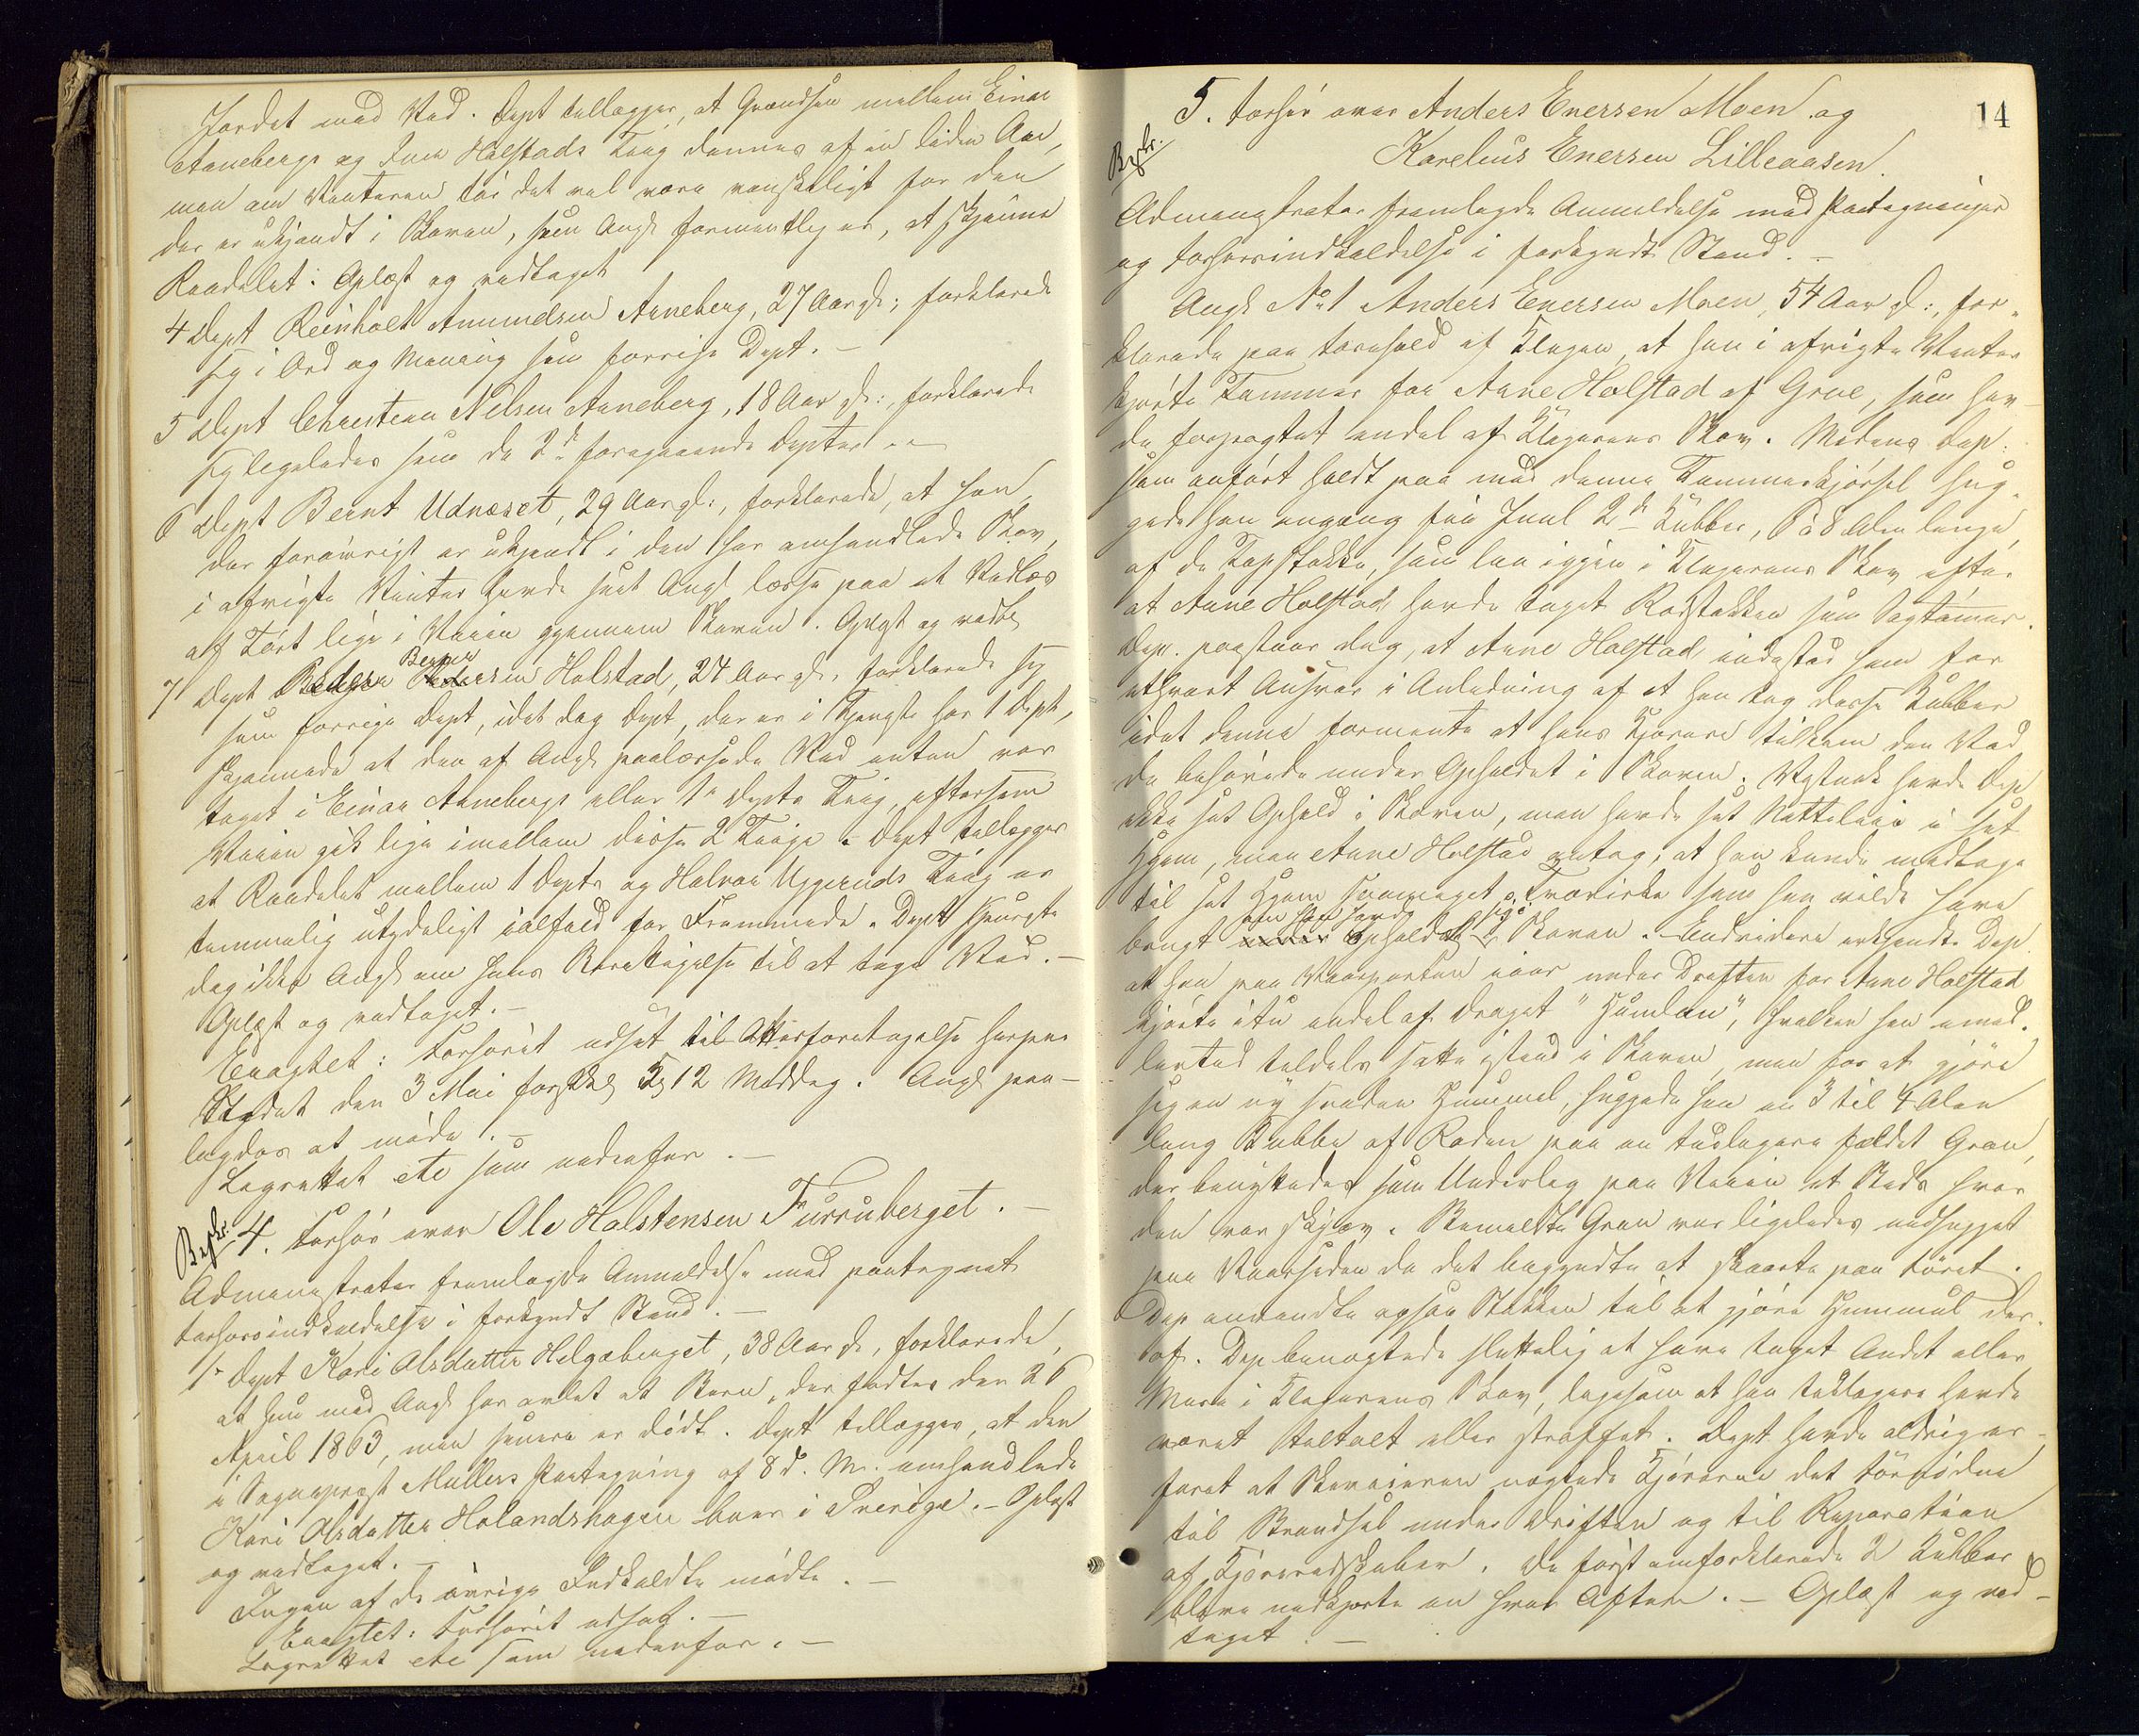 Jordet med Ved. Dept tillægger, at Grændsen mellem Einar
Anneberg og Juul Holstads Teig dannes af en liden Aae,
men om Vinteren tør det vel være vanskeligt for den
der er ukjendt i Skoven, som Angk formentlig er, at skjønne
Raadelet: Oplæst og vedtaget
4 Dept Reinholt Amundsen Anneberg, 27 Aar gl:, forklarede
sig i Ord og Mening som forrige Dept. –
5 Dept Christian Nilsen Anneberg, 18 Aar gl:, forklarede
sig ligeledes som de 2de foregaaende Depter. –
6 Dept Bernt Udnæset, 29 Aar gl:, forklarede, at han,
der forøvrigt er ukjendt i den her omhandlede Skov,
i afvigte Vinter havde seet Angk læsse paa et Vedlæs
af Tørt lige i Veien gjennem Skoven. Oplæst og vedt
7 Dept Peder Berger Pedersen Holstad, 24 Aar gl, forklarede sig
som forrige Dept, idet dog Dept, der er i Tjeneste hos 1 Dept,
skjønnede at den af Angk paalæssede Ved enten var
taget i Einar Annebergs eller 1e Depts Teig, eftersom
Veien gik lige imellem disse 2 Teige. Dept tillægger
at Raadelet mellem 1 Depts og Halvor Uggeruds Teig er
temmelig utydeligt ialfald for Fremmede. Dept spurgte
dog ikke Angk om hans Berettigelse til at tage Ved. –
Oplæst og vedtaget. –
Eragtet: Forhørét udsat til Atterforetagelse herpaa
Stedet den 3 Mai førstk Kl 12 Middag. Angk paa-
lagdes at møde. –
Lagrettet etc som nedenfor. –
Beskr. 4. Forhør over Ole Halstensen Furruberget. –
Admenistrator fremlagde Anmeldelse med paategnet
Forhørsindkaldelse i forkyndt Stand. –
1e Dept Kari Olsdatter Helgeberget, 38 Aar gl, forklarede,
at hun med Angk har avlet et Barn, der fødtes den 26
April 1863, men senere er dødt. Dept tillægger, at den
i Sognepræst Müllers Paategning af 8 d. M. omhandlede
Kari Olsdatter Holandshagen boer i Sverige. – Oplæst
og vedtaget. –
Ingen af de øvrige Indkaldte mødte. –
Eragtet: Forhørét udsat. –
Lagrettet etc som nedenfor. –
14
5. Forhør over Anders Enersen Moen og
Beskr.
Karelius Enersen Lilleaasen.
Admenistrator fremlagde Anmeldelse med Paategninger
og Forhørsindkaldelse i forkyndt Stand. –
Angk No 1 Anders Enersen Moen, 54 Aar gl:, for-
klarede paa Forehold af Klagen, at han i afvigte Vinter
kjørte Tømmer for Arne Holstad af Grue, som hav-
de forpagtet endel af Klagerens Skov. Medens Dep:
som anført holdt paa med denne Tømmerkjørsel hug-
gede han engang før Juul 2de Kubber, 6 a 8 Alen lange,
af de Topstokke, som laa igjen i Klagerens Skov efter
at Arne Holstad havde taget Rodstokken som Sagtømmer.
Dep. paastaar dog, at Arne Holstad indestod ham for
ethvert Ansvar i Anledning af at han tog disse Kubber
idet denne formente at hans Kjørere tilkom den Ved
de behøvede under Opholdet i Skoven. Vistnok havde Dep
ikke sit Ophold i Skoven, men havde sit Natteleie i sit
Hjem, men Arne Holstad antog, at han kunde medtage
til sit Hjem saameget Tørvirke som han vilde have
brugt om han havde Opholdt sig i Skoven. Endvidere erkjendte Dep
at han paa Vaarparten iaar under Driften for Arne Holstad
kjørte itu endel af Draget "Humlen", hvilken han imid-
lertid tildels satte istand i Skoven, men for at gjøre
sig en ny saadan Hummel, huggede han en 3 til 4 Alen
lang Kubbe af Roden paa en tidligere fældet Gran,
der benyttedes som Underlag paa Veien et Sted hvor
den var skjæv. Bemeldte Gran var ligeledes nedhugget
paa Vaarsiden da det begyndte at skorte paa Føret.
Dep anvendte ogsaa Stokken til at gjøre Hummul der-
af. Dep benegtede sluttelig at have taget Andet eller
Mere i Klagerens Skov, ligesom at han tidligere havde
været tiltalt eller straffet. Dept havde aldrig er-
faret at Skoveieren negtede Kjørerne det fornødne
til Brændsel under Driften og til Reparation
af Kjøreredskaber. De først omforklarede 2 Kubber
bleve nedkjørte en hver Aften. – Oplæst og ved-
taget. –